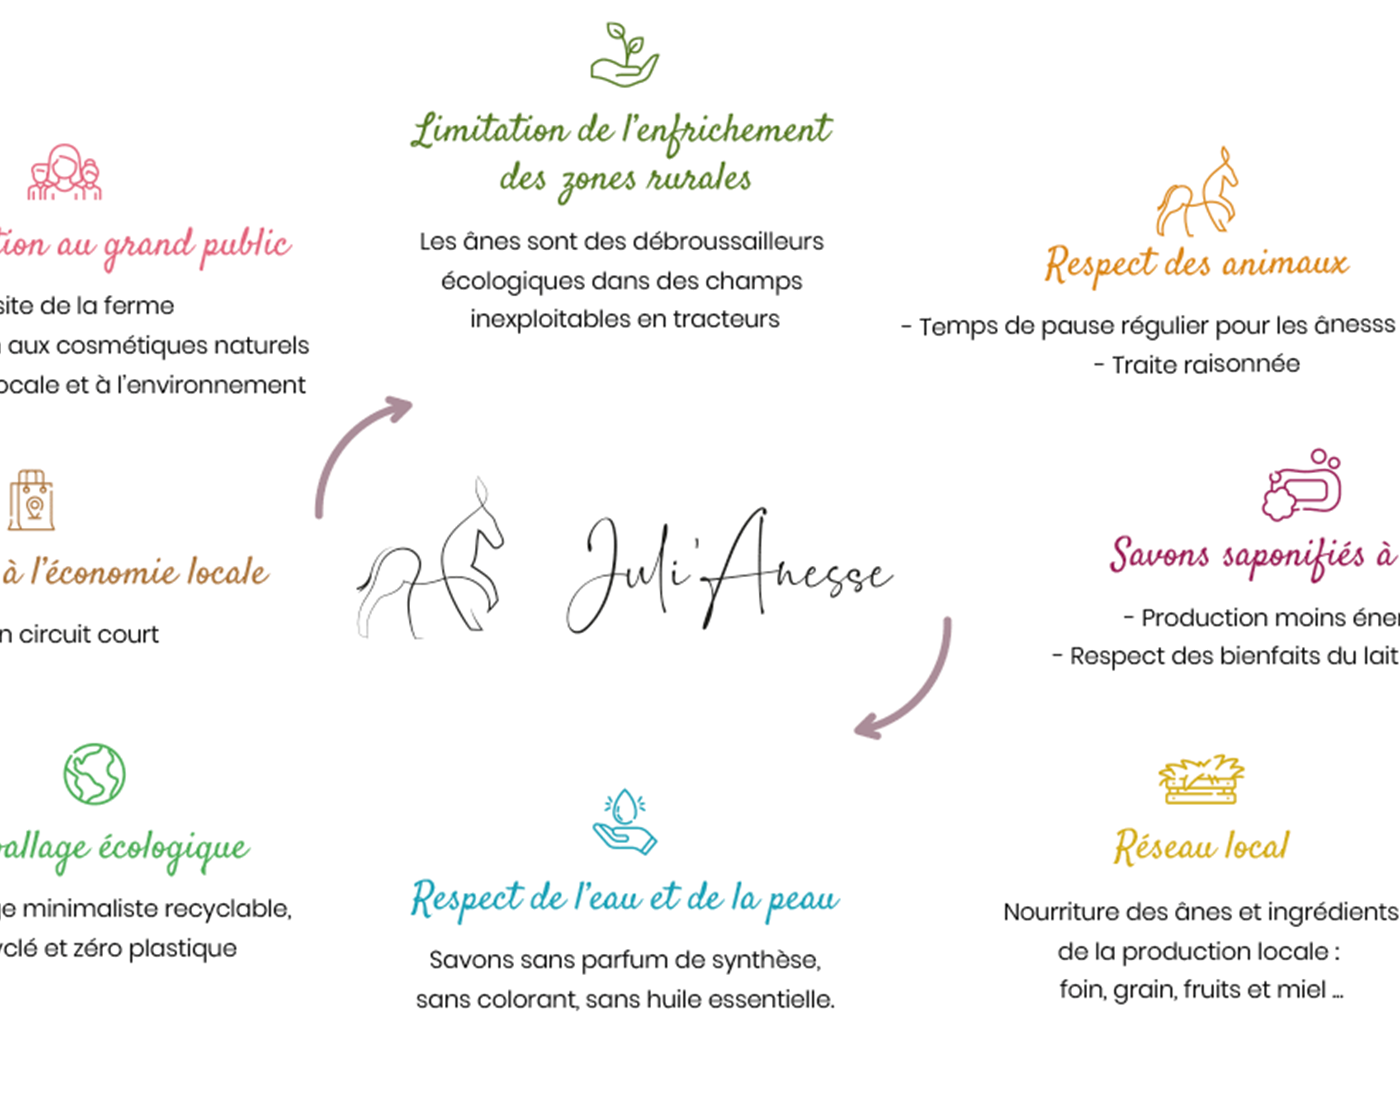 Limitation de l'enfrichement
des zones rurales
Les ânes sont des débroussailleurs
écologiques dans des champs
inexploitables en tracteurs
tion au grand public
site de la ferme
aux cosmétiques naturels
ocale et à l'environnement
Respect des animaux
- Temps de pause régulier pour les ânesss
- Traite raisonnée
à l'économie locale
n circuit court
Juli'Anesse
Savons saponifiés à
- Production moins éner
- Respect des bienfaits du lait
allage écologique
ge minimaliste recyclable,
yclé et zéro plastique
Respect de l'eau et de la peau
Savons sans parfum de synthèse,
sans colorant, sans huile essentielle.
Réseau local
Nourriture des ânes et ingrédients
de la production locale :
foin, grain, fruits et miel ...